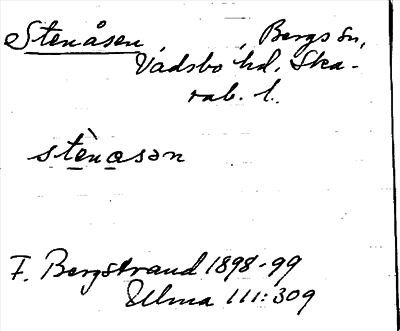 Stenåsen, , Bergs sn,
Vadsbo hd, Ska-
rab. l.
stènasən
F. Bergstrand 1898-99
Ulma 111:309